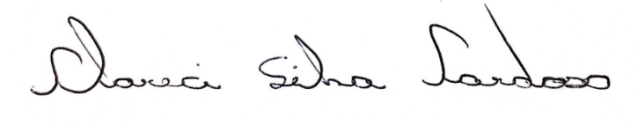 Clareci Silva Cardoso